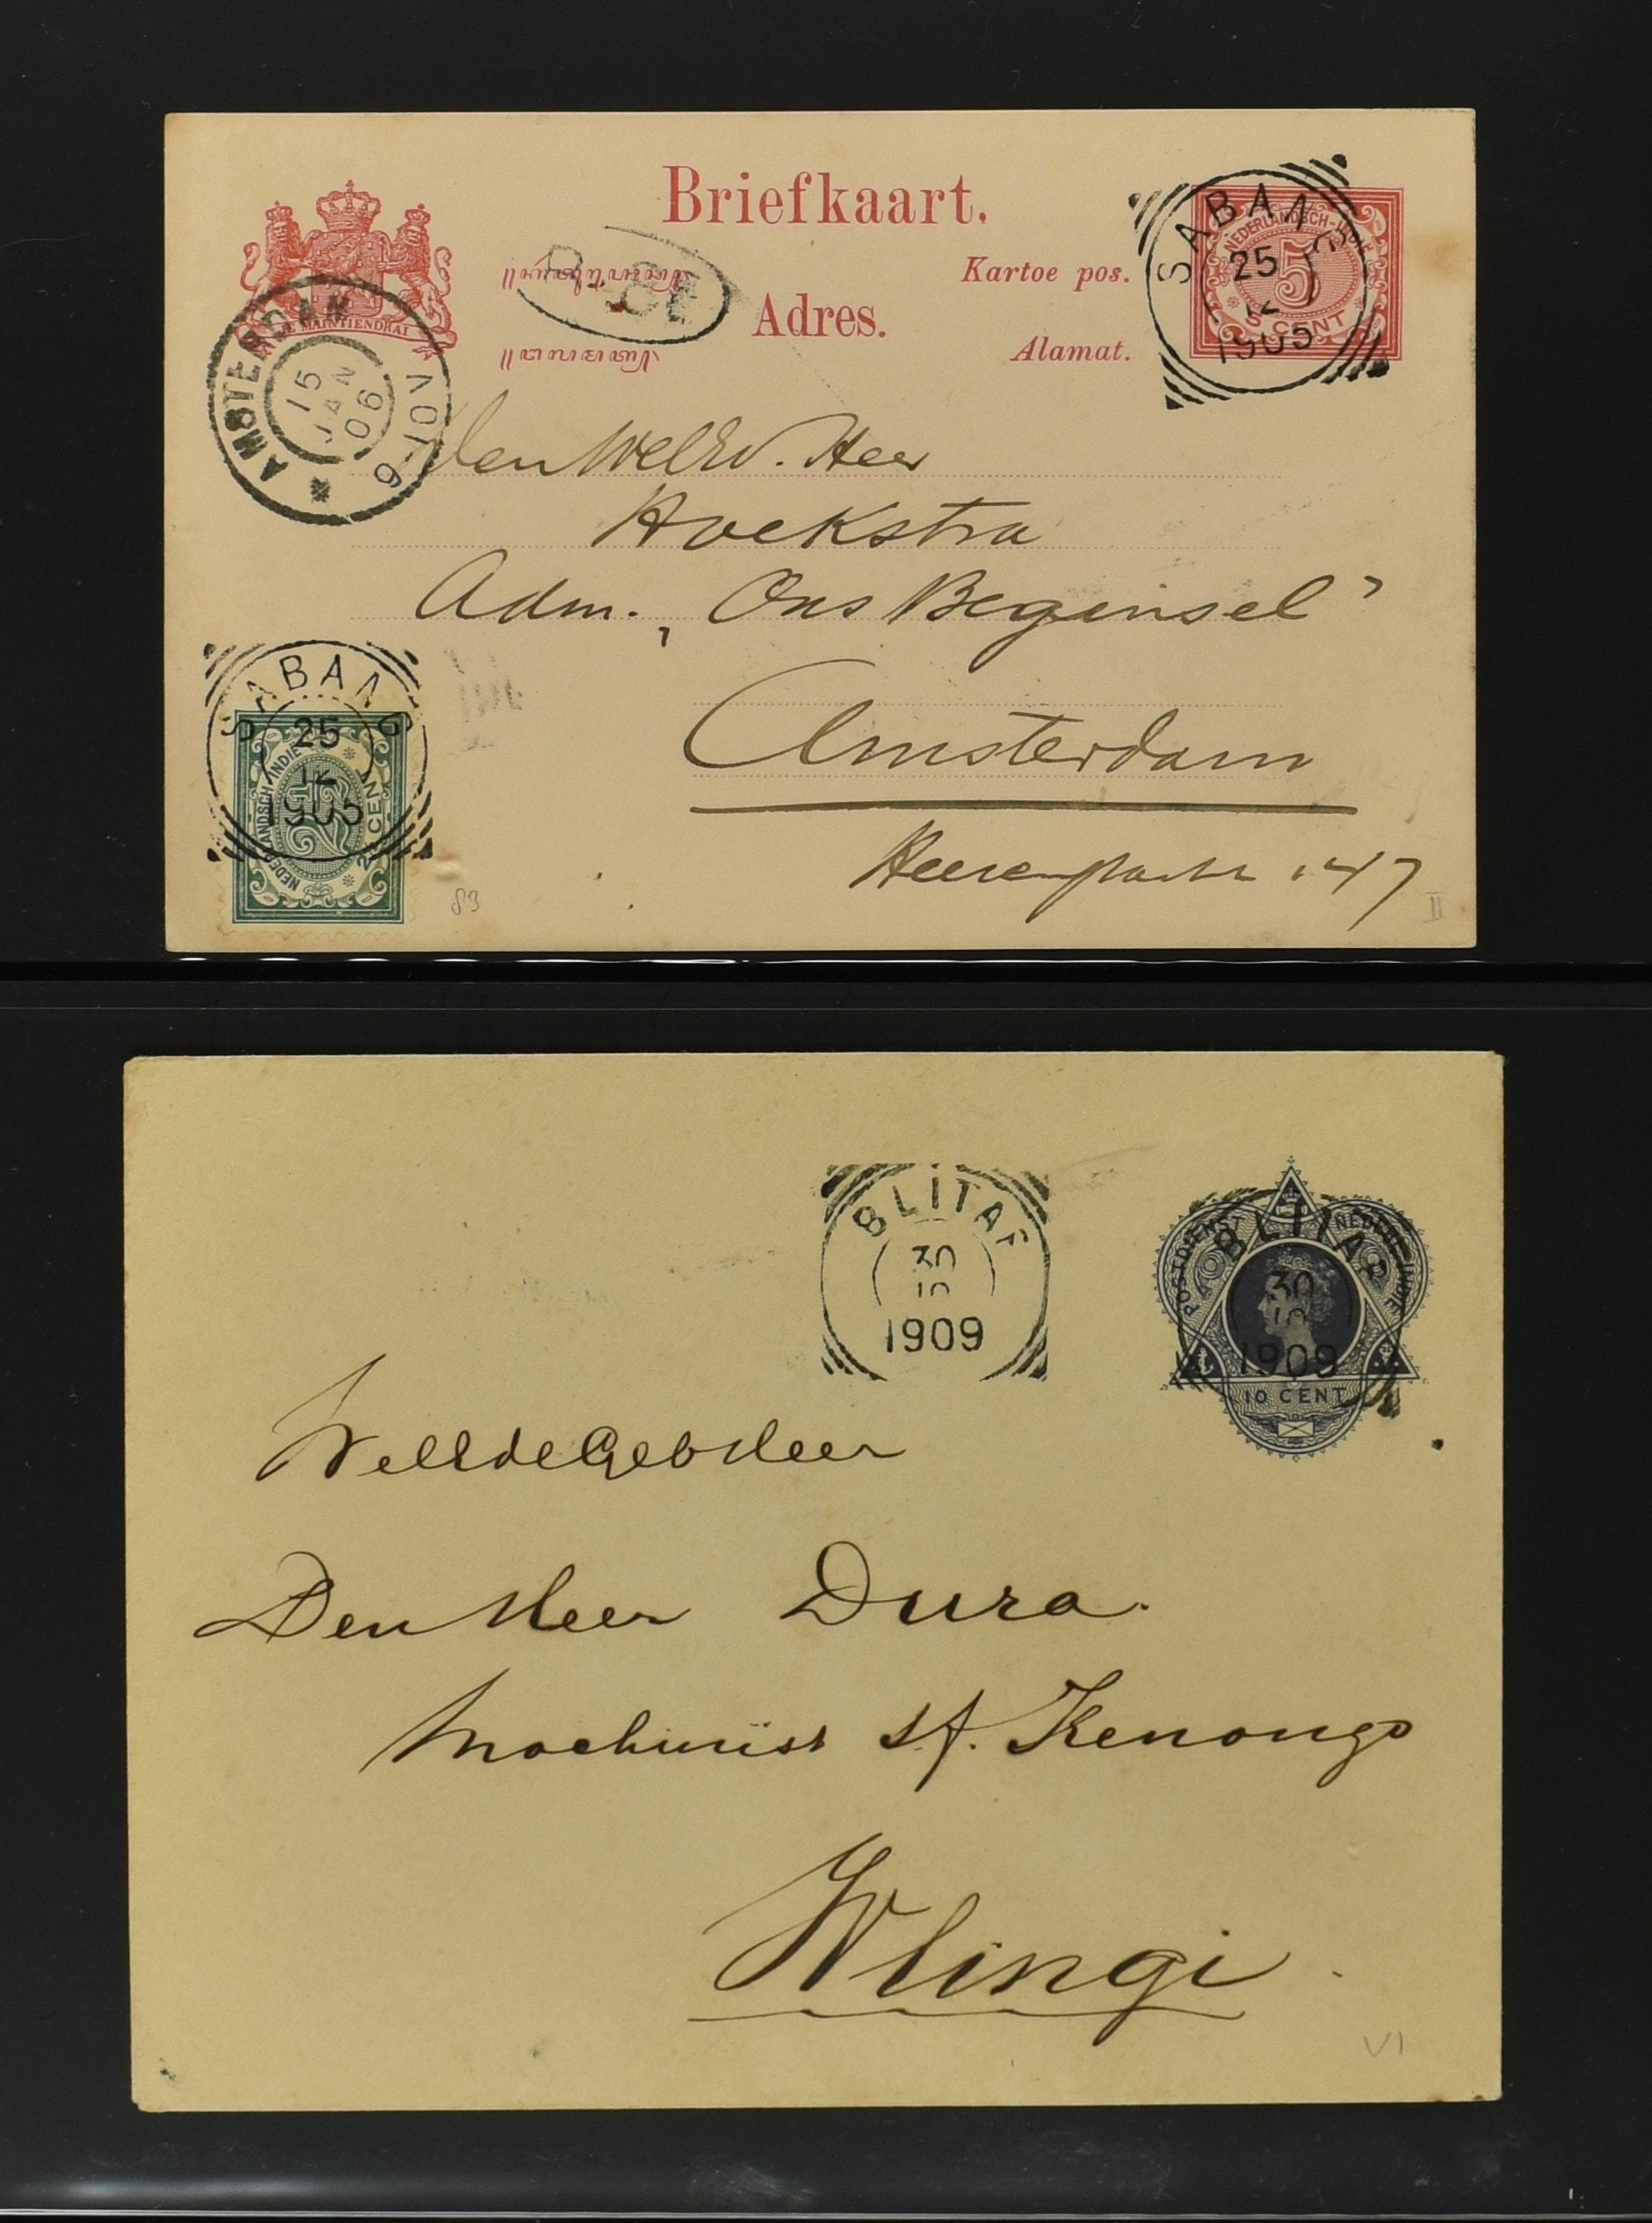 Briefkaart.
Kartoe pos.
Adres.
Alamat.
JE MAINTIENDRAI
AMSTERDAM
15
JAN
06
9-10V
SABANG
25
12
1905
NEDERLANDSCH-INDIË
5
5 CENT
Den WelEd. Heer
Hoekstra
Adm. „Ons Beginsel”
Amsterdam
147
SABANG
25
12
1905
NEDERLANDSCH INDIE
2½
2½ CENT
83
II
BLITAR
30
10
1909
BLITAR
30
10
1909
POSTDIENST
NEDERL-INDIE
10 CENT
WelEdeGeb Heer
Den Heer Dura.
Machinist s/f. Kenongo
Wlingi
VI